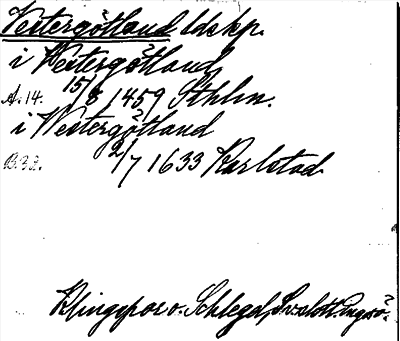 Vestergötland ldskp.
i Vestergötland
A. 14. 15/8 1459 Sthlm.
i Westergötland
B. 32. 2/7 1633 Karlstad
Klingspor o. Schlegel, Sv. slott. Engsö.